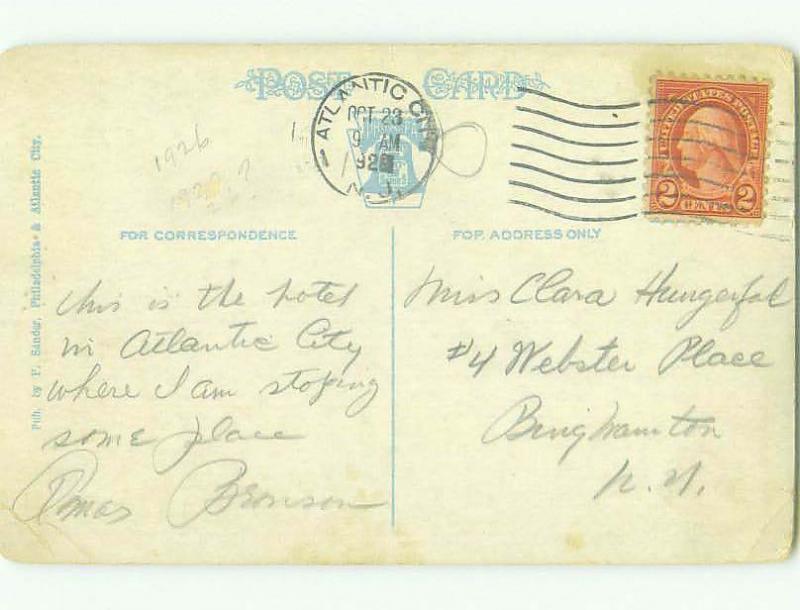 POST CARD
ATLANTIC CITY
OCT 23
9 AM
192
N.J.
UNITED STATES POSTAGE
2 2
1926
192 ?
FOR CORRESPONDENCE
FOR ADDRESS ONLY
Pub. by P. Sander, Philadelphia & Atlantic City.
this is the hotel
in Atlantic City
where I am stoping
some place
Bronson
Miss Clara Hungerford
#4 Webster Place
Binghamton
N.Y.